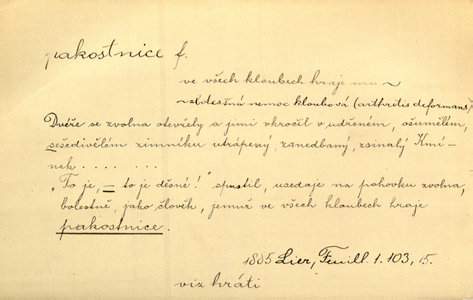 pakostnice f.
ve všech kloubech hraje mu ~
~ děsná nemoc kloubová (arthritis deformans)
Dvéře se zvolna otevřely a jimi vkročil v udřeném, ošumělém,
sešedivělém zimníku utrápený, zanedbaný, zsinalý Kmí-
nek . . . . . .
„To je, — to je děsné!" spustil, usedaje na pohovku zvolna,
bolestně, jako člověk, jemuž ve všech kloubech hraje
pakostnice.
1885 Lier, Feuill. 1. 103, 15.
viz hráti